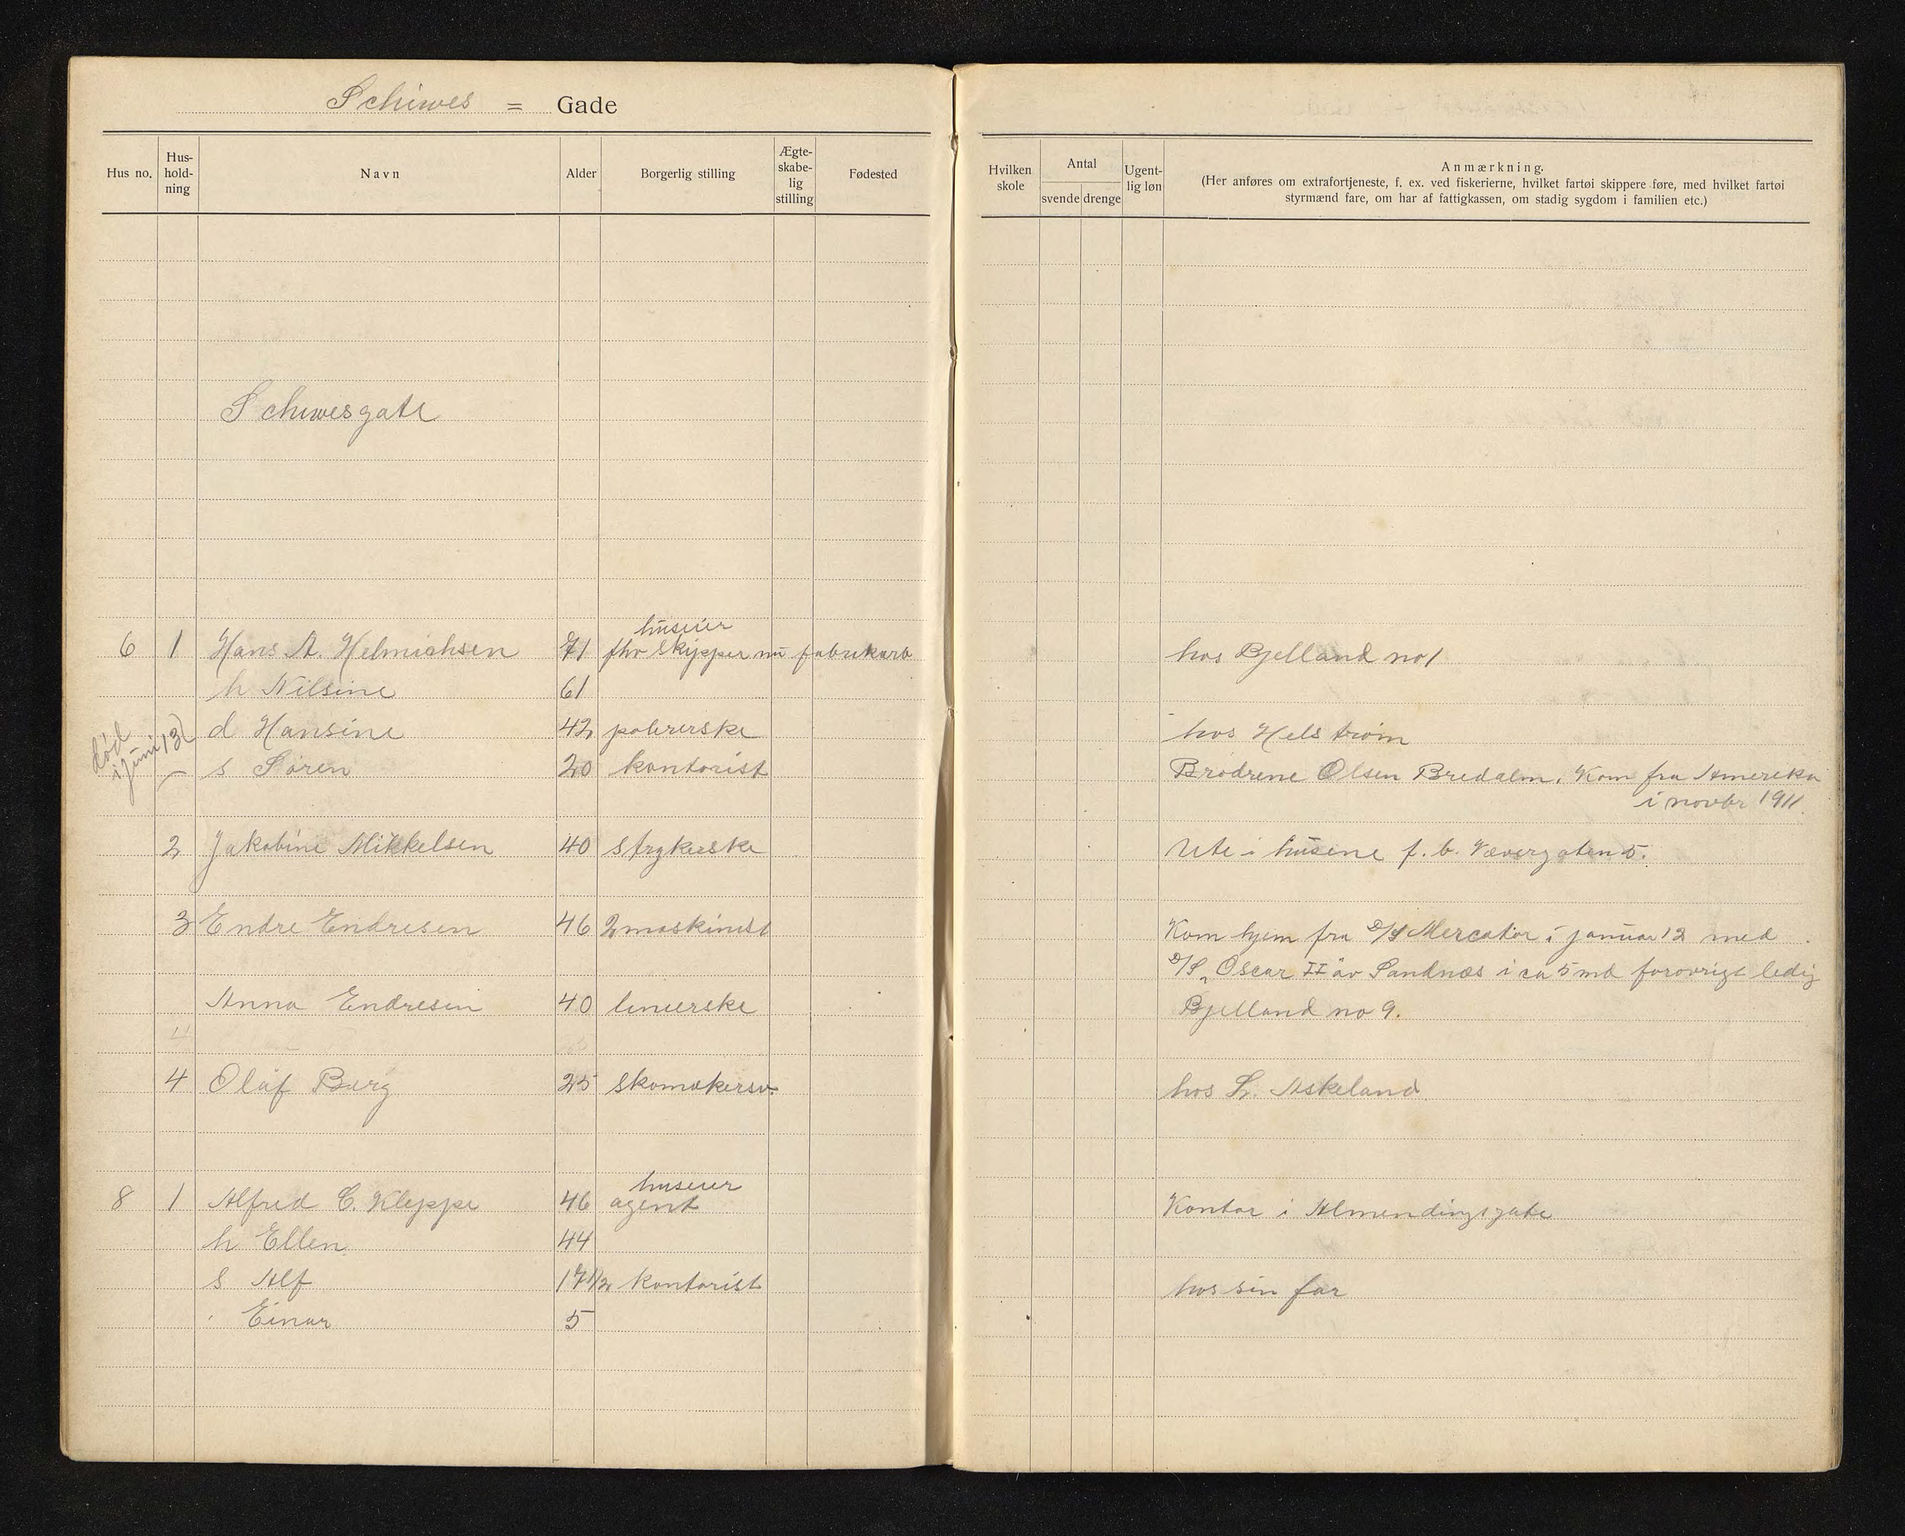 Schiwes = Gade
Hus no.
Hus-
hold-
ning
Navn
Alder
Borgerlig stilling
Ægte-
skabe-
lig
stilling
Fødested
Hvilken
skole
Antal
svende drenge
Ugent-
lig løn
Anmærkning.
(Her anføres om extrafortjeneste, f. ex. ved fiskerierne, hvilket fartøi skippere føre, med hvilket fartøi
styrmænd fare, om har af fattigkassen, om stadig sygdom i familien etc.)
Schiwesgate
huseier
6 1 Hans A. Helmichsen 71 fhv skipper nu fabrikarb hos Bjelland no 1
h Nilsine 61
d Hansine 42 polererske hos Helstrøm
død
i juni 13
s Søren 20 kontorist Brødrene Olsen Bredalm. Kom fra Amerika
i novbr 1911
2 Jakobine Mikkelsen 40 strykerske Ute i husene f. b. Vævergaten 5.
3 Endre Endresen 46 2 maskinist Kom hjem fra D/S Mercator i januar 12 med
D/S „Oscar II av Sandnæs i ca 5 md forøvrigt ledig
Anna Endresen 40 linierske Bjelland no 9.
4 Olaf Berg 25 skomakersv. hos L. Askeland
huseier
8 1 Alfred C. Kleppe 46 agent Kontor i Almendingsgate
h Ellen 44
s Alf 17 1/2 kontorist hos sin far
" Einar 5